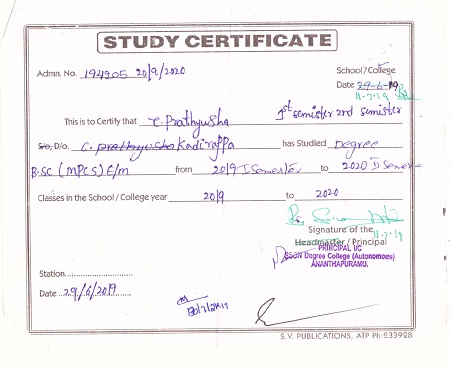 STUDY CERTIFICATE
Admn. No. 194905 20/9/2020
School/College
Date 29-6-19
11-7-19
This is to Certify that C. Prathyusha 1st semister 2nd semister
S/o, D/o. C. Prathyusha Kadirappa has Studied Degree
B.SC (MPCS) E/m from 2019 I Semester to 2020 II Semes
Classes in the School / College year 2019 to 2020
Signature of the
11-7-19
Headmaster / Principal
PRINCIPAL I/C
SSBN Degree College (Autonomoes)
ANANTHAPURAMU.
Station
Date 29/6/2019
S.V. PUBLICATIONS, ATP Ph-233928